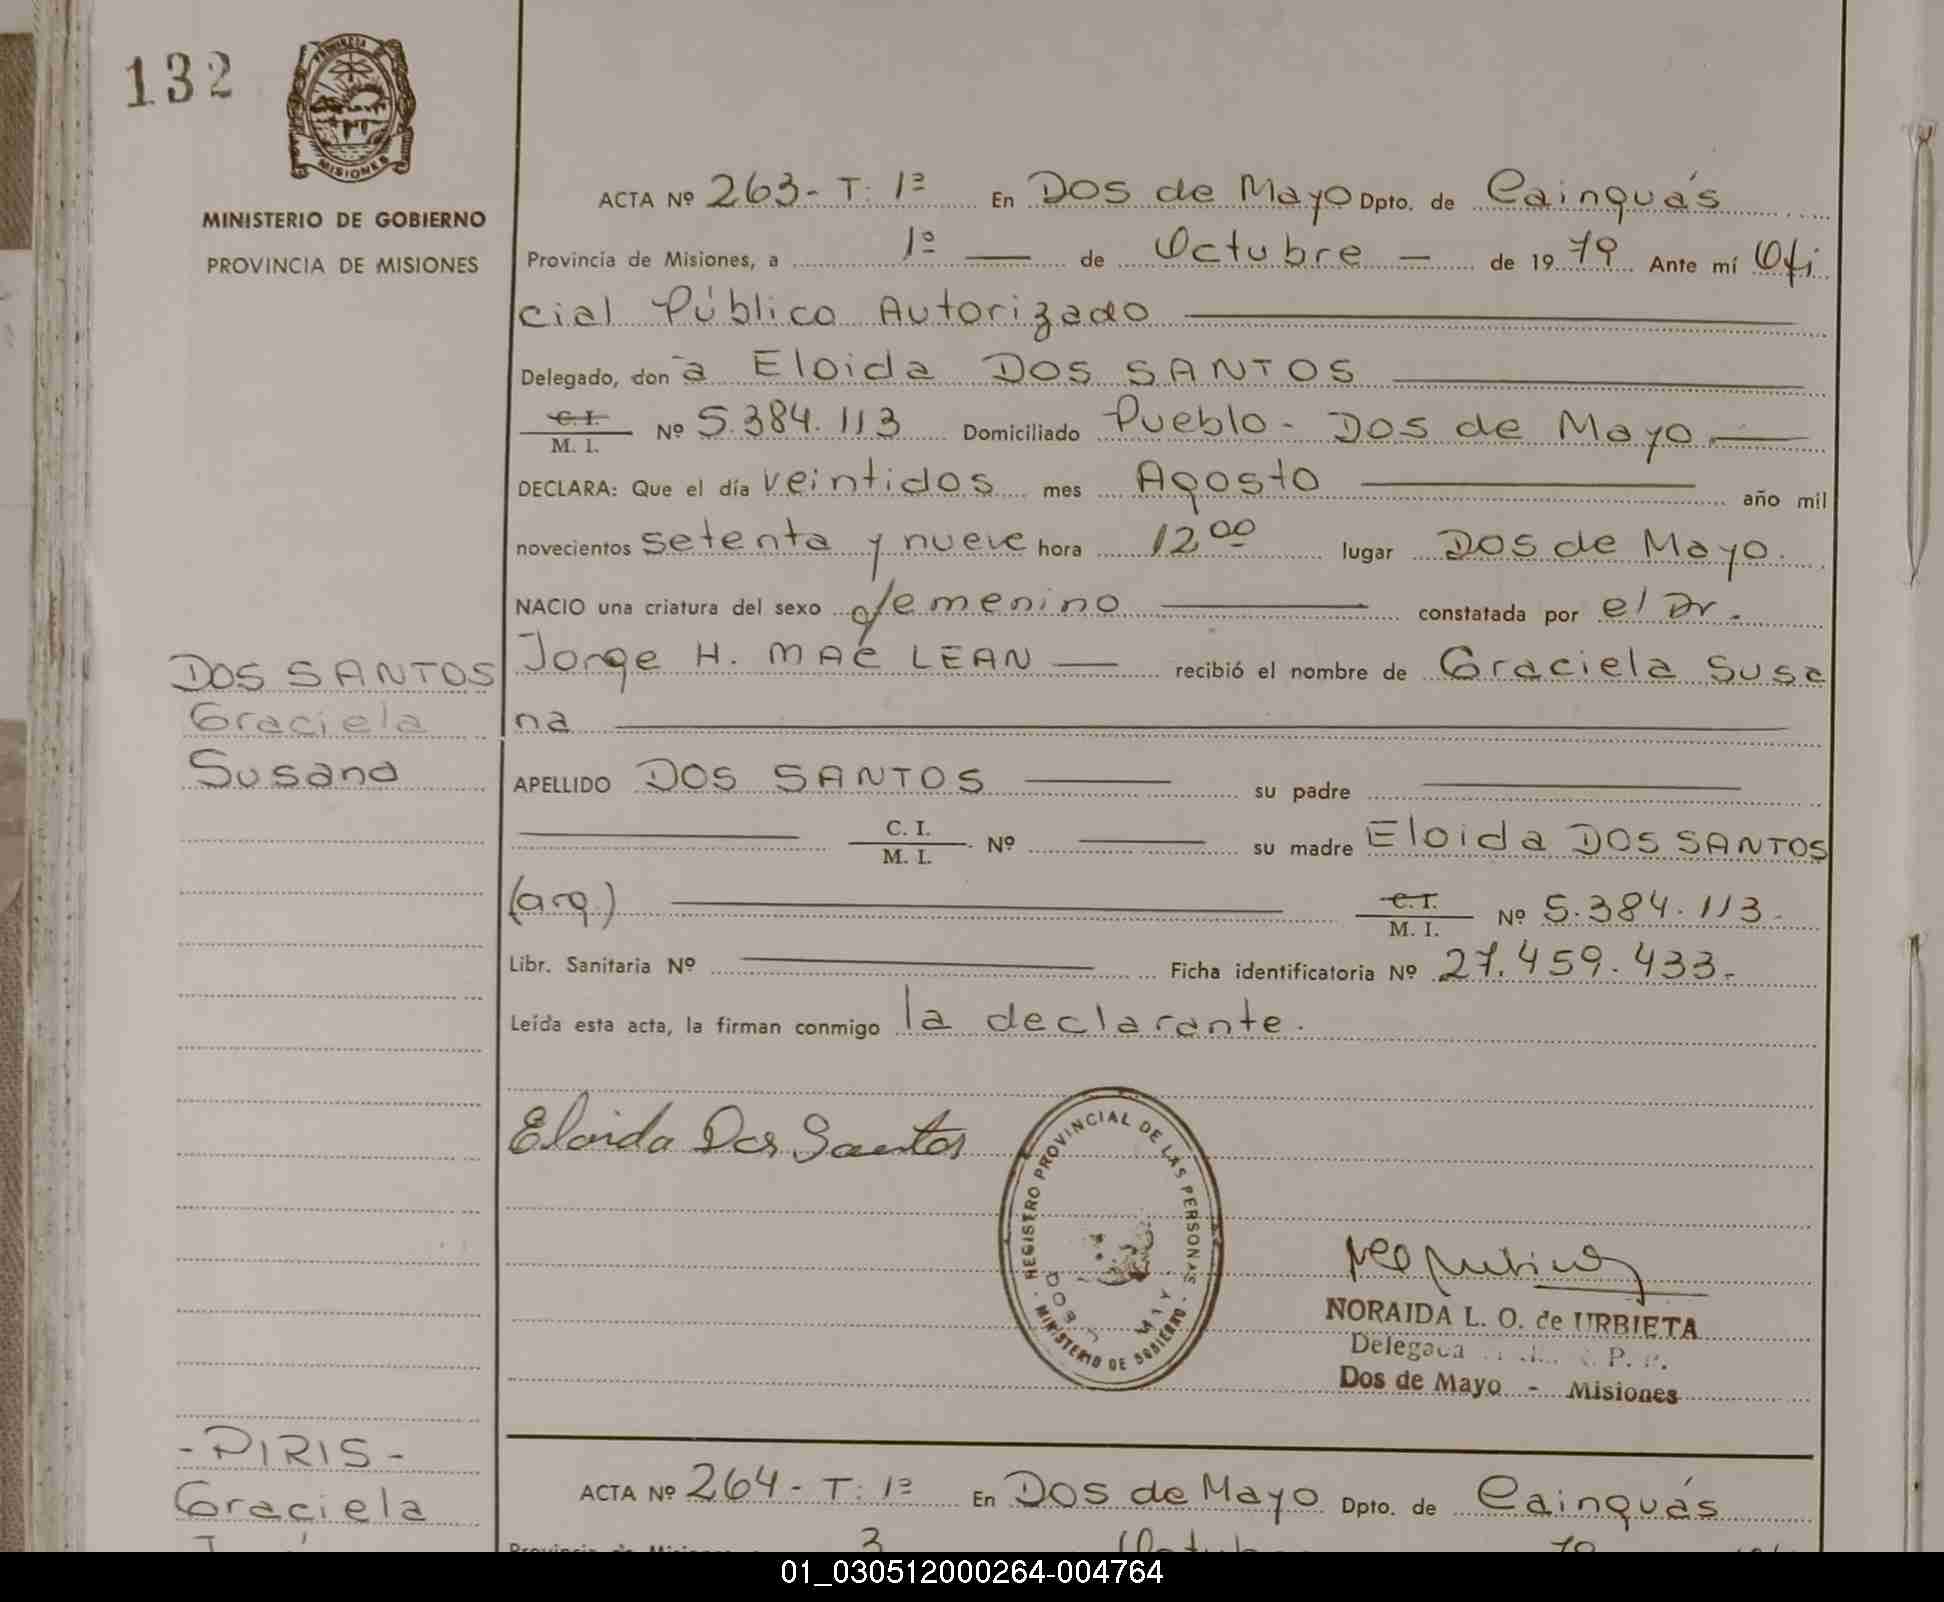 132
PROVINCIA DE
MISIONES
MINISTERIO DE GOBIERNO
PROVINCIA DE MISIONES
ACTA Nº 263- T: 1º En Dos de Mayo Dpto. de Cainguás
Provincia de Misiones, a 1º — de Octubre — de 1979 Ante mí Ofi
cial Público Autorizado
Delegado, don a Eloida DOS SANTOS
C. I. / M. I. Nº 5.384.113 Domiciliado Pueblo - Dos de Mayo
DECLARA: Que el día veintidos mes Agosto año mil
novecientos setenta y nueve hora 12 00 lugar Dos de Mayo.
NACIO una criatura del sexo femenino constatada por el Dr.
Jorge H. MAC LEAN — recibió el nombre de Graciela Susa
na
DOS SANTOS
Graciela
Susana
APELLIDO DOS SANTOS — su padre
C. I. / M. I. Nº — su madre Eloida DOS SANTOS
(arg.) C. I. / M. I. Nº 5.384.113-
Libr. Sanitaria Nº — Ficha identificatoria Nº 27.459.433-
Leída esta acta, la firman conmigo la declarante.
Eloida Dos Santos
REGISTRO PROVINCIAL DE LAS PERSONAS
MINISTERIO DE GOBIERNO
NORAIDA L. O. de URBIETA
Delegada
Dos de Mayo - Misiones
-PIRIS-
Graciela
ACTA Nº 264- T: 1º En Dos de Mayo Dpto. de Cainguás
01_030512000264-004764